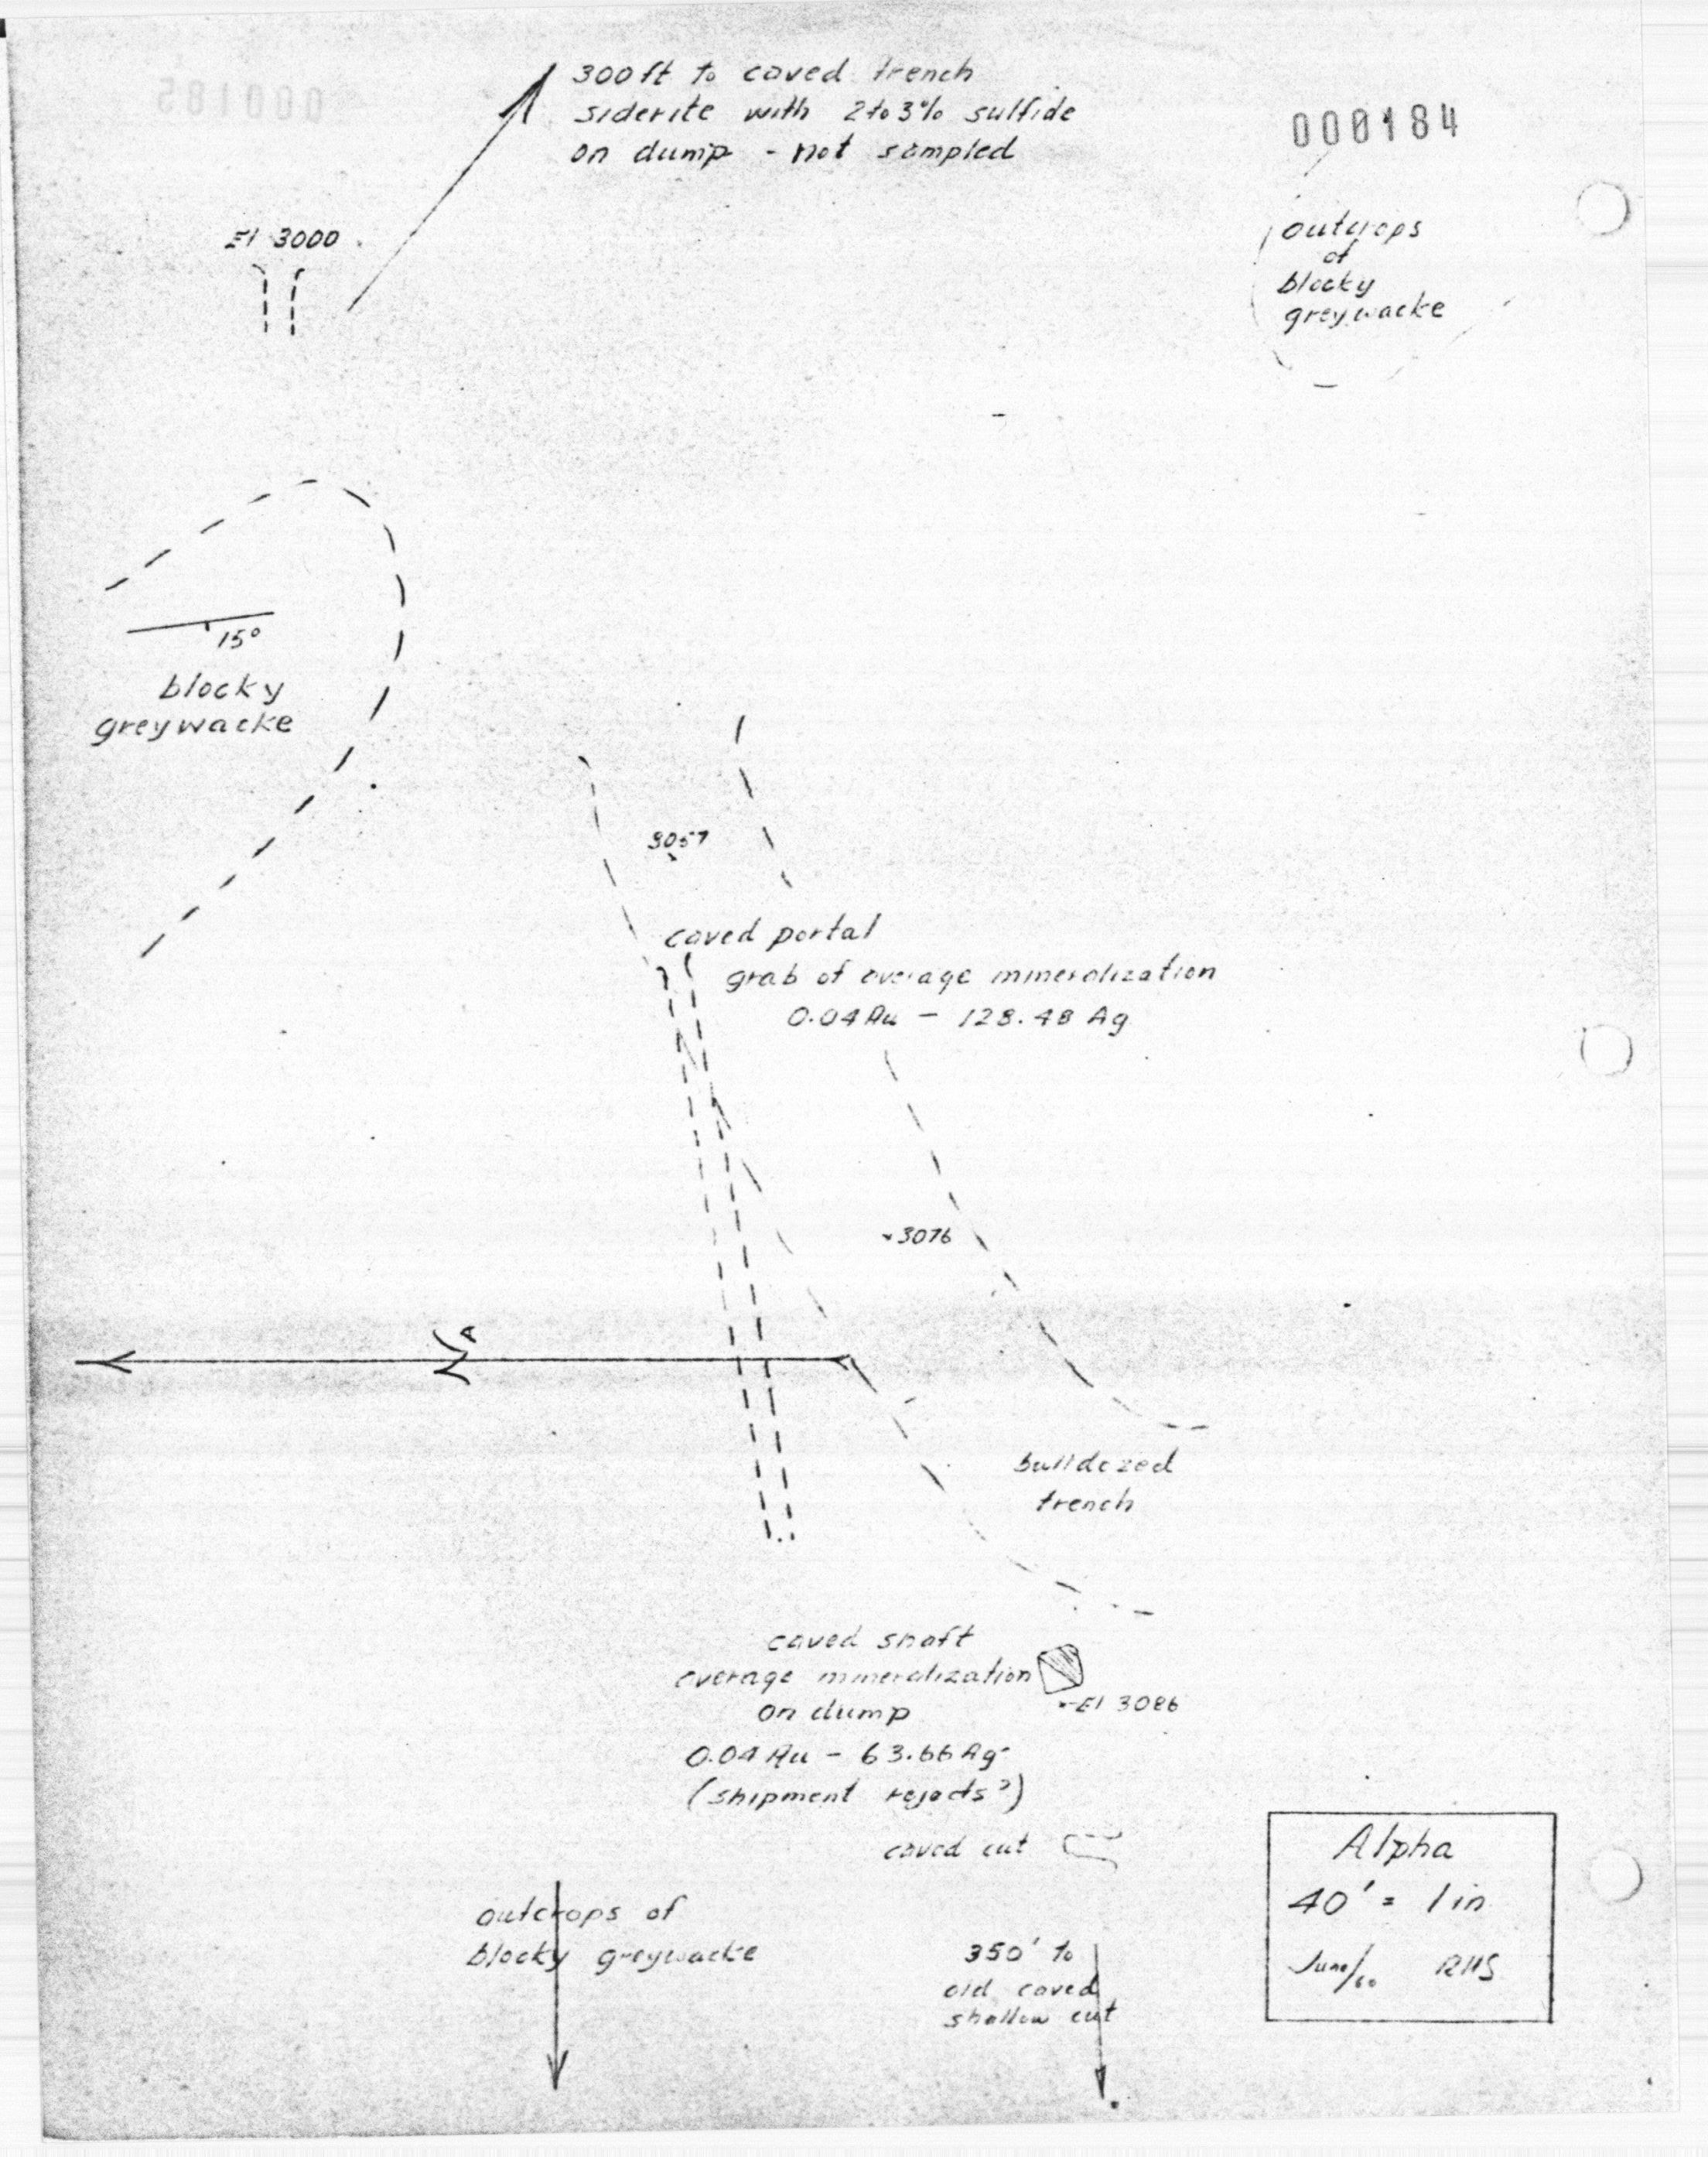 300 ft to caved trench
siderite with 2 to 3% sulfide
on dump - not sampled
000185
000184
El 3000
outcrops
of
blocky
greywacke
15°
blocky
greywacke
3057
caved portal
grab of average mineralization
0.04 Au - 128.48 Ag
3076
N
bulldozed
trench
caved shaft
average mineralization
on dump
0.04 Au - 63.66 Ag
(shipment rejects?)
El 3086
caved cut
outcrops of
blocky greywacke
350' to
old caved
shallow cut
Alpha
40' = 1 in
June/60 RHS